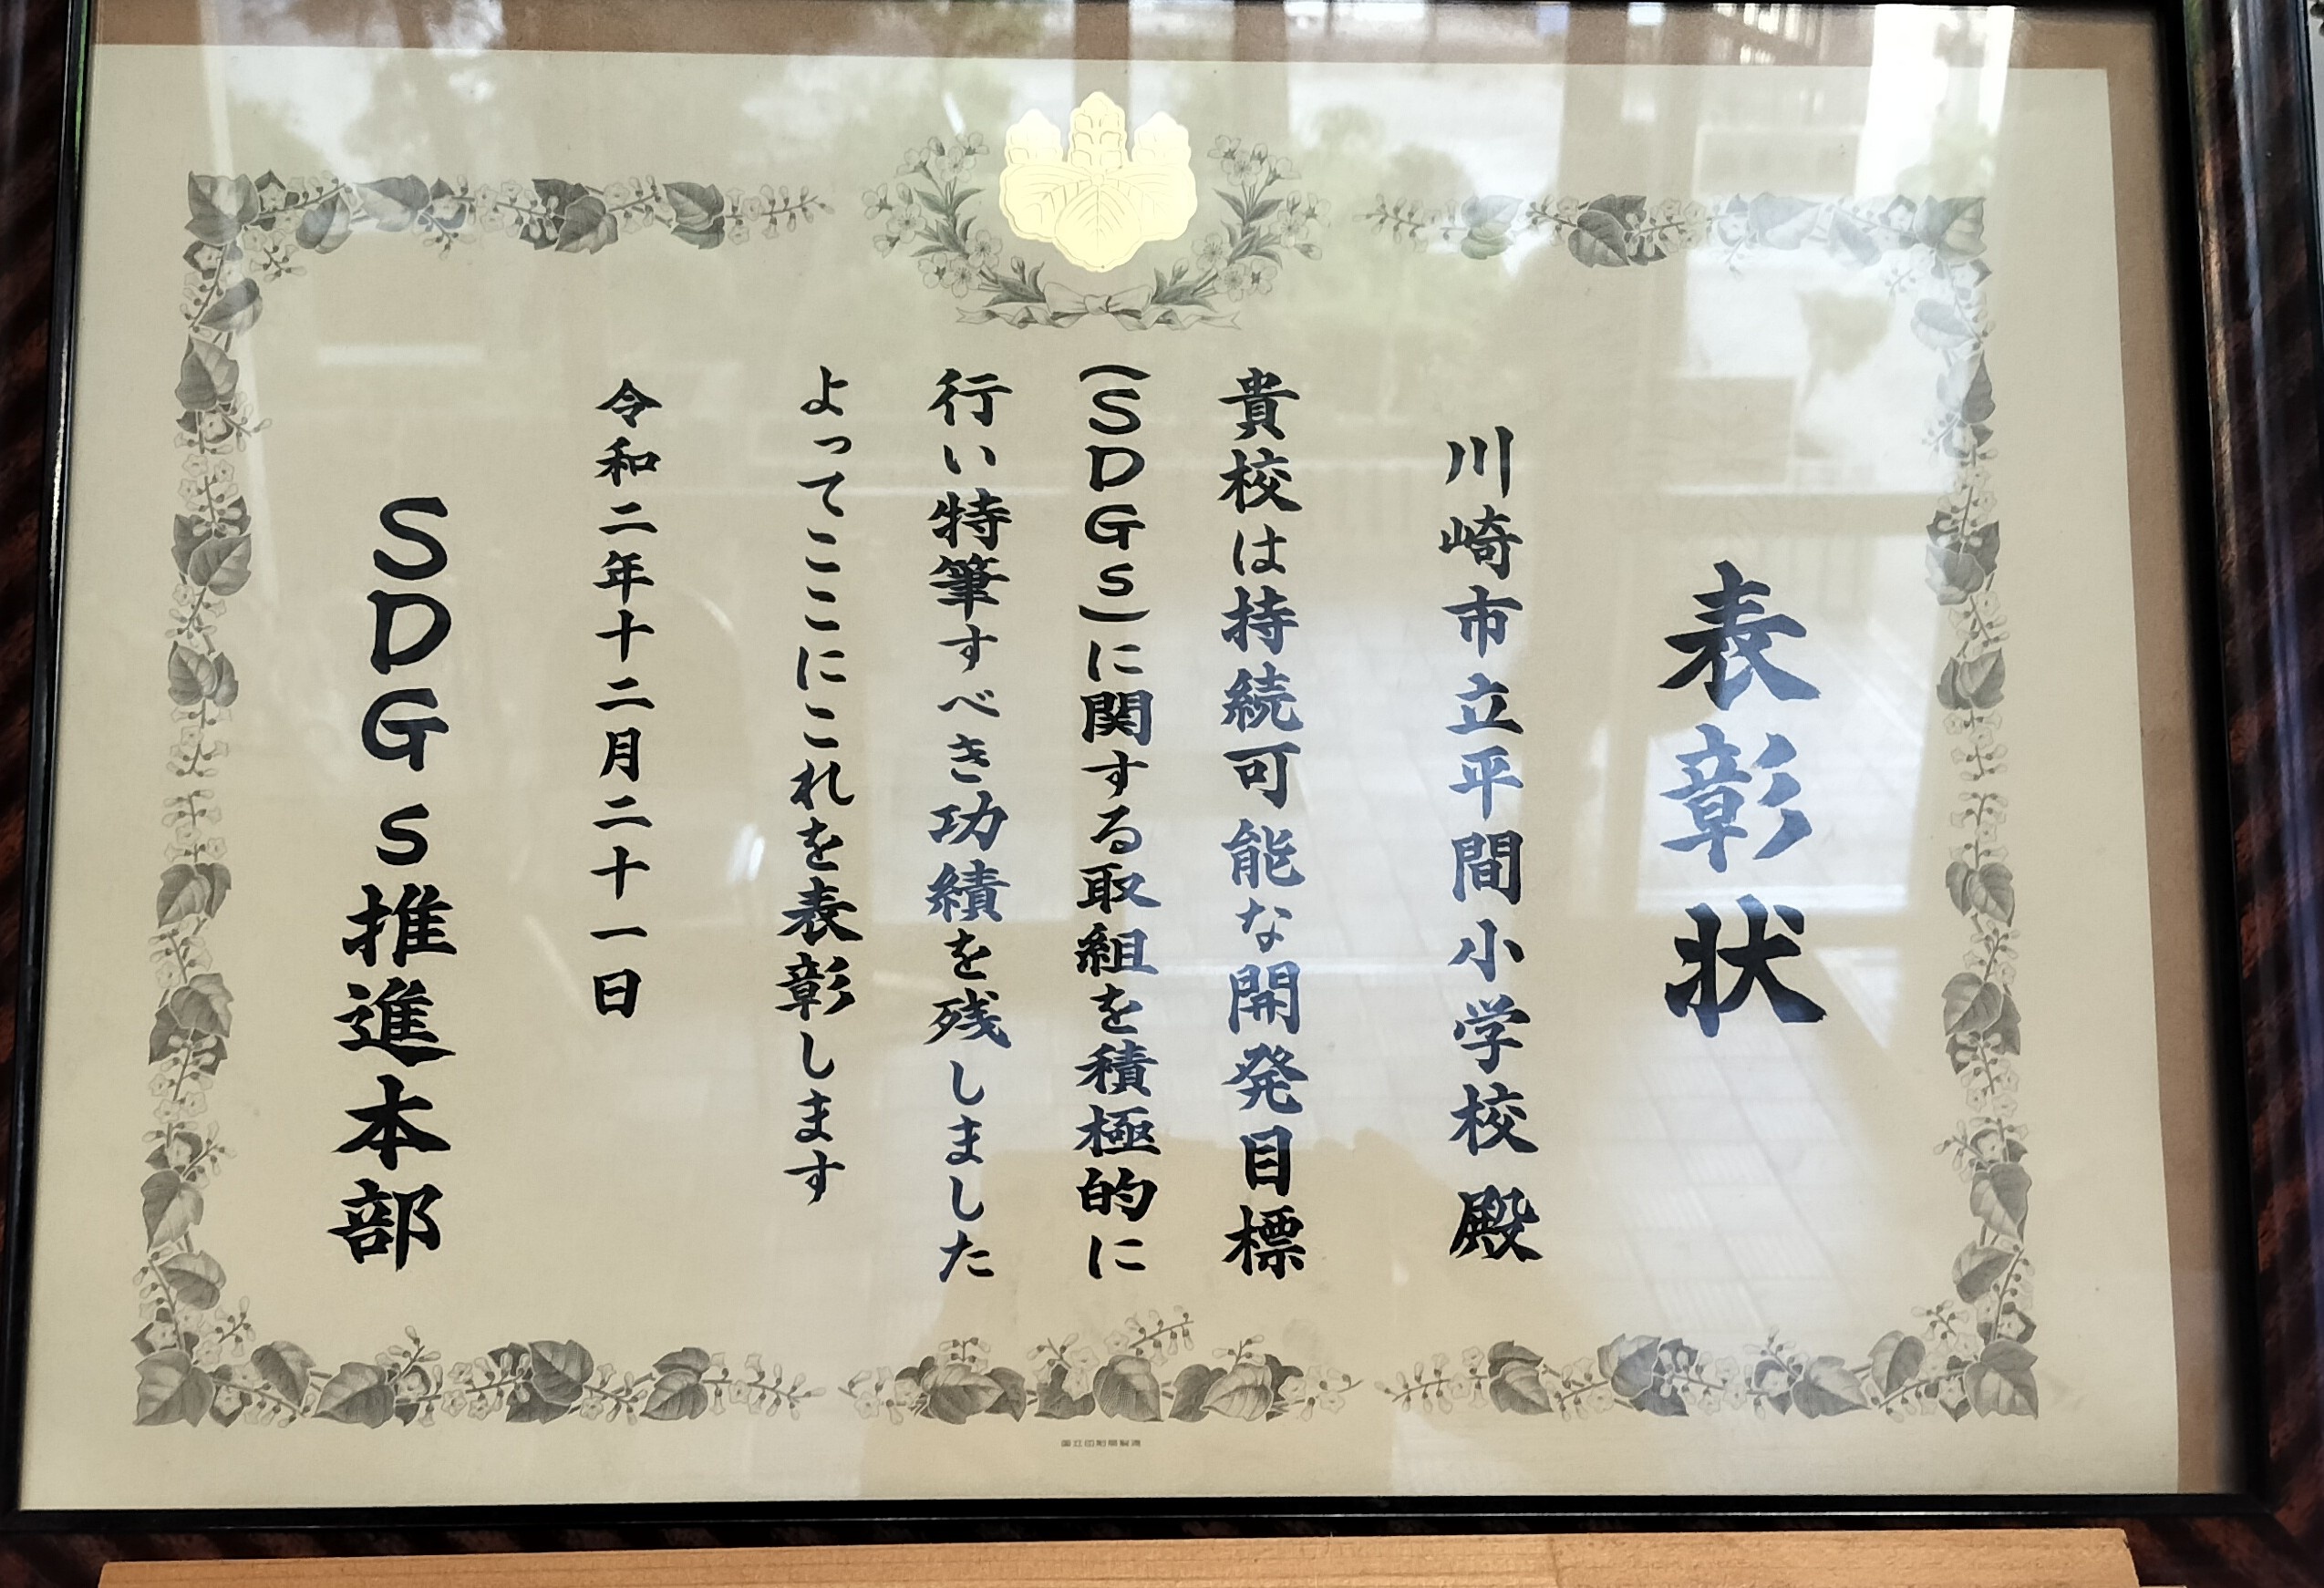 表彰状
川崎市立平間小学校 殿
貴校は持続可能な開発目標
(SDGs)に関する取組を積極的に
行い特筆すべき功績を残しました
よってここにこれを表彰します
令和二年十二月二十一日
SDGs推進本部
国立印刷局製造